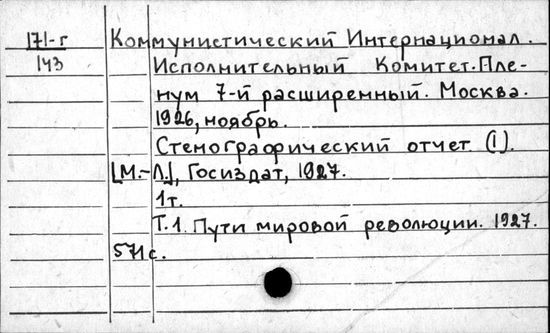 171-г Коммунистический Интернационал.
143 Исполнительный Комитет. Пле-
нум 7-й расширенный. Москва.
1926, ноябрь.
Стенографический отчет (I).
[М.-Л.], Госиздат, 1927.
1т.
Т.1. Пути мировой революции. 1927.
571с.